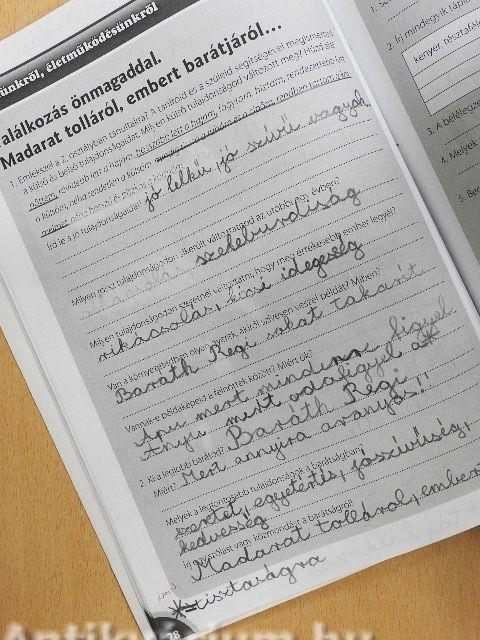 ünkről, életműködésünkről
alálkozás önmagaddal.
Madarat tolláról, embert barátjáról...
1. Emlékezel a 2. osztályban tanultakra? A tanítóid és a szüleid segítségével megismerted
a külső és belső tulajdonságaidat. Milyen külső tulajdonságod változott meg? Húzd alá!
nőttem, rövidebb lett a hajam, hosszabb lett a hajam, fogytam, híztam, rendezettebb lett
a külsőm, néha rendetlen a külsőm,
Írd le a jó tulajdonságaidat! jó lelkű, jó szívű vagyok
Milyen rossz tulajdonságodon sikerült változtatnod az utóbbi egy évben?
szeleburdiság
Milyen tulajdonságodon szeretnél változtatni, hogy még értékesebb ember legyél?
rikácsolás, kicsi idegesség
Van a környezetedben olyan gyerek, akitől szívesen veszel példát? Miben?
Baráth Regi sokat takarít
Vannak-e példaképeid a felnőttek között? Miért ők?
Apu mert mindenre figyel
Anyu mert odafigyel a*
2. Ki a legjobb barátod? Baráth Regi
Miért? Mert annyira aranyos!!
Melyek a legfontosabb tulajdonságok a barátságban?
szeretet, egyetértés, jószívűség,
kedvesség
Írj egy szólást vagy közmondást a barátságról!
Madarat tolláról, embert
*=tisztaságra
28
Antikvarium.hu
2. Írj mindegyik táplá
kenyér, tésztafélé
3. A bélelésze
4. Melyek